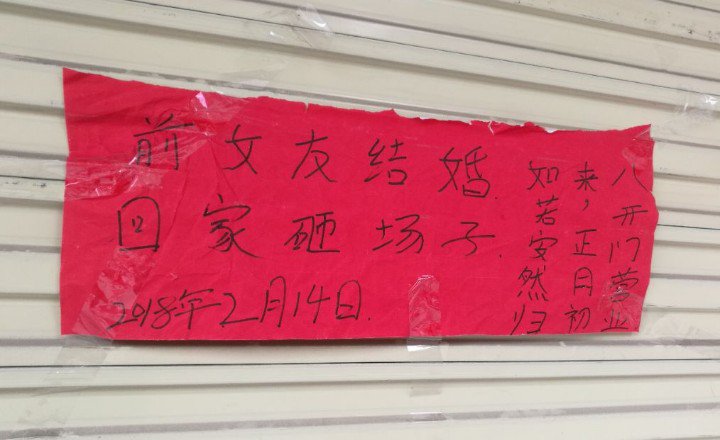 前女友结婚.
回家砸场子.
2018年2月14日.
如若安然归
来，正月初
八开门营业